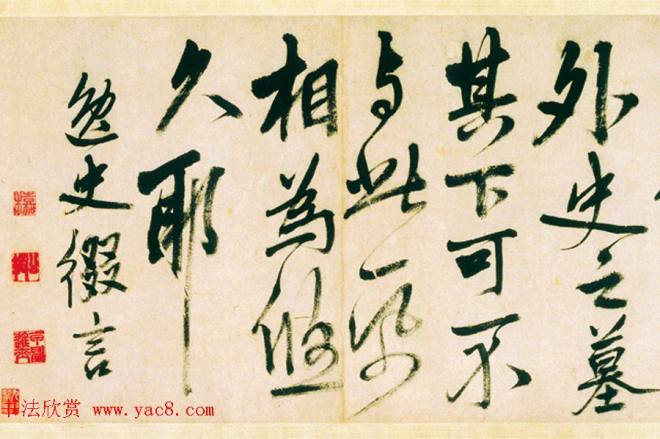 外史之墓
其下可不
与此
相為悠
久耶
史綴言
书法欣赏 www.yac8.com